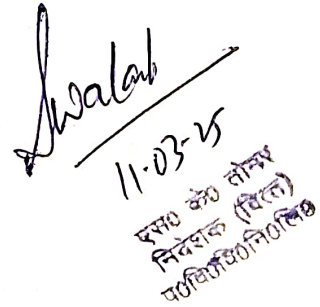 11-03-25
एस० के० तोमर
निदेशक (वित्त)
प०वि०वि०नि०लि०